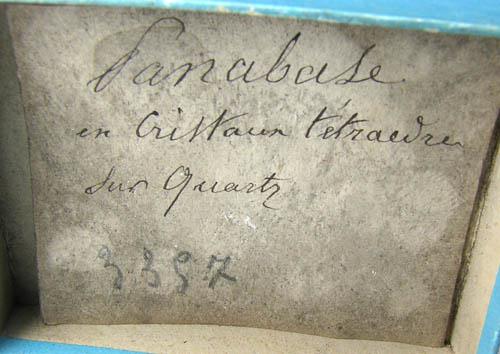 Panabase
en Cristaux tétraedres
sur Quartz
3357